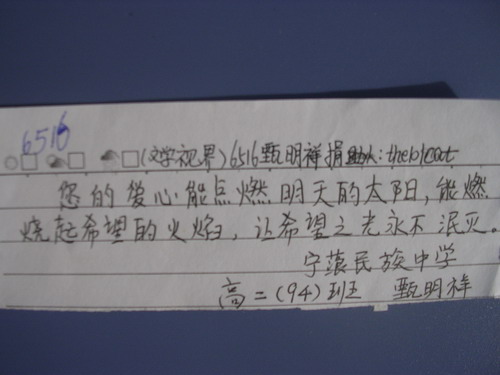 6516
(文学视界)6516甄明祥捐助人:
您的爱心能点燃明天的太阳,能燃
烧起希望的火焰,让希望之光永不泯灭。
宁蒗民族中学
高二(94)班 甄明祥